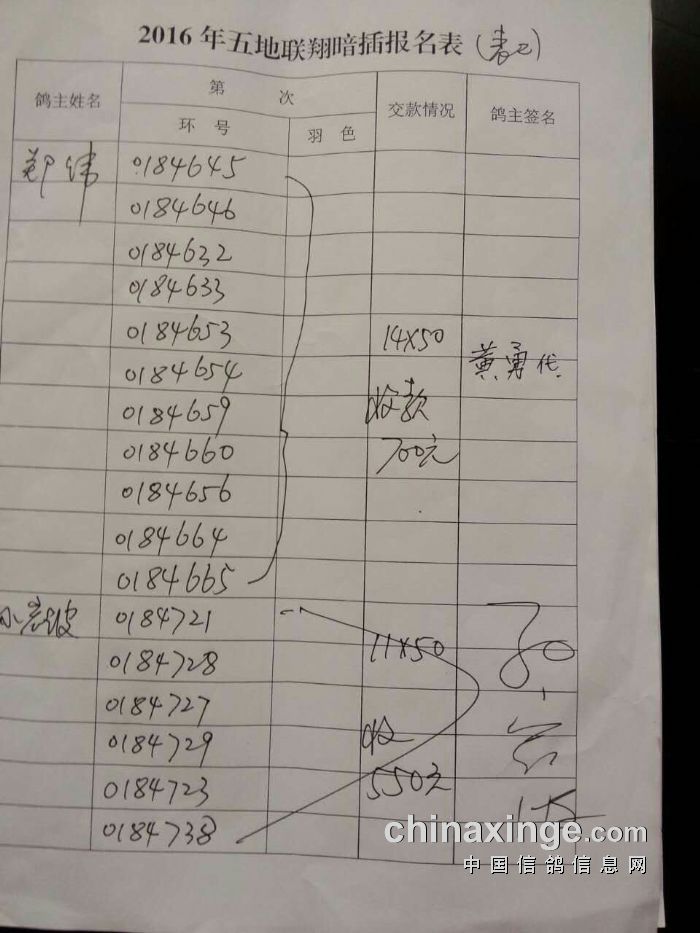 2016年五地联翔暗插报名表（表2）
鸽主姓名 第 次 交款情况 鸽主签名
环号 羽色
郑纬 0184645
0184646
0184632
0184633
0184653 14X50
0184654 黄勇代
0184659 收款
0184660 700元
0184656
0184664
0184665
0184721
0184728 11X50
0184727
0184729 收
0184723 550元
0184738
chinaxinge.com
中国信鸽信息网